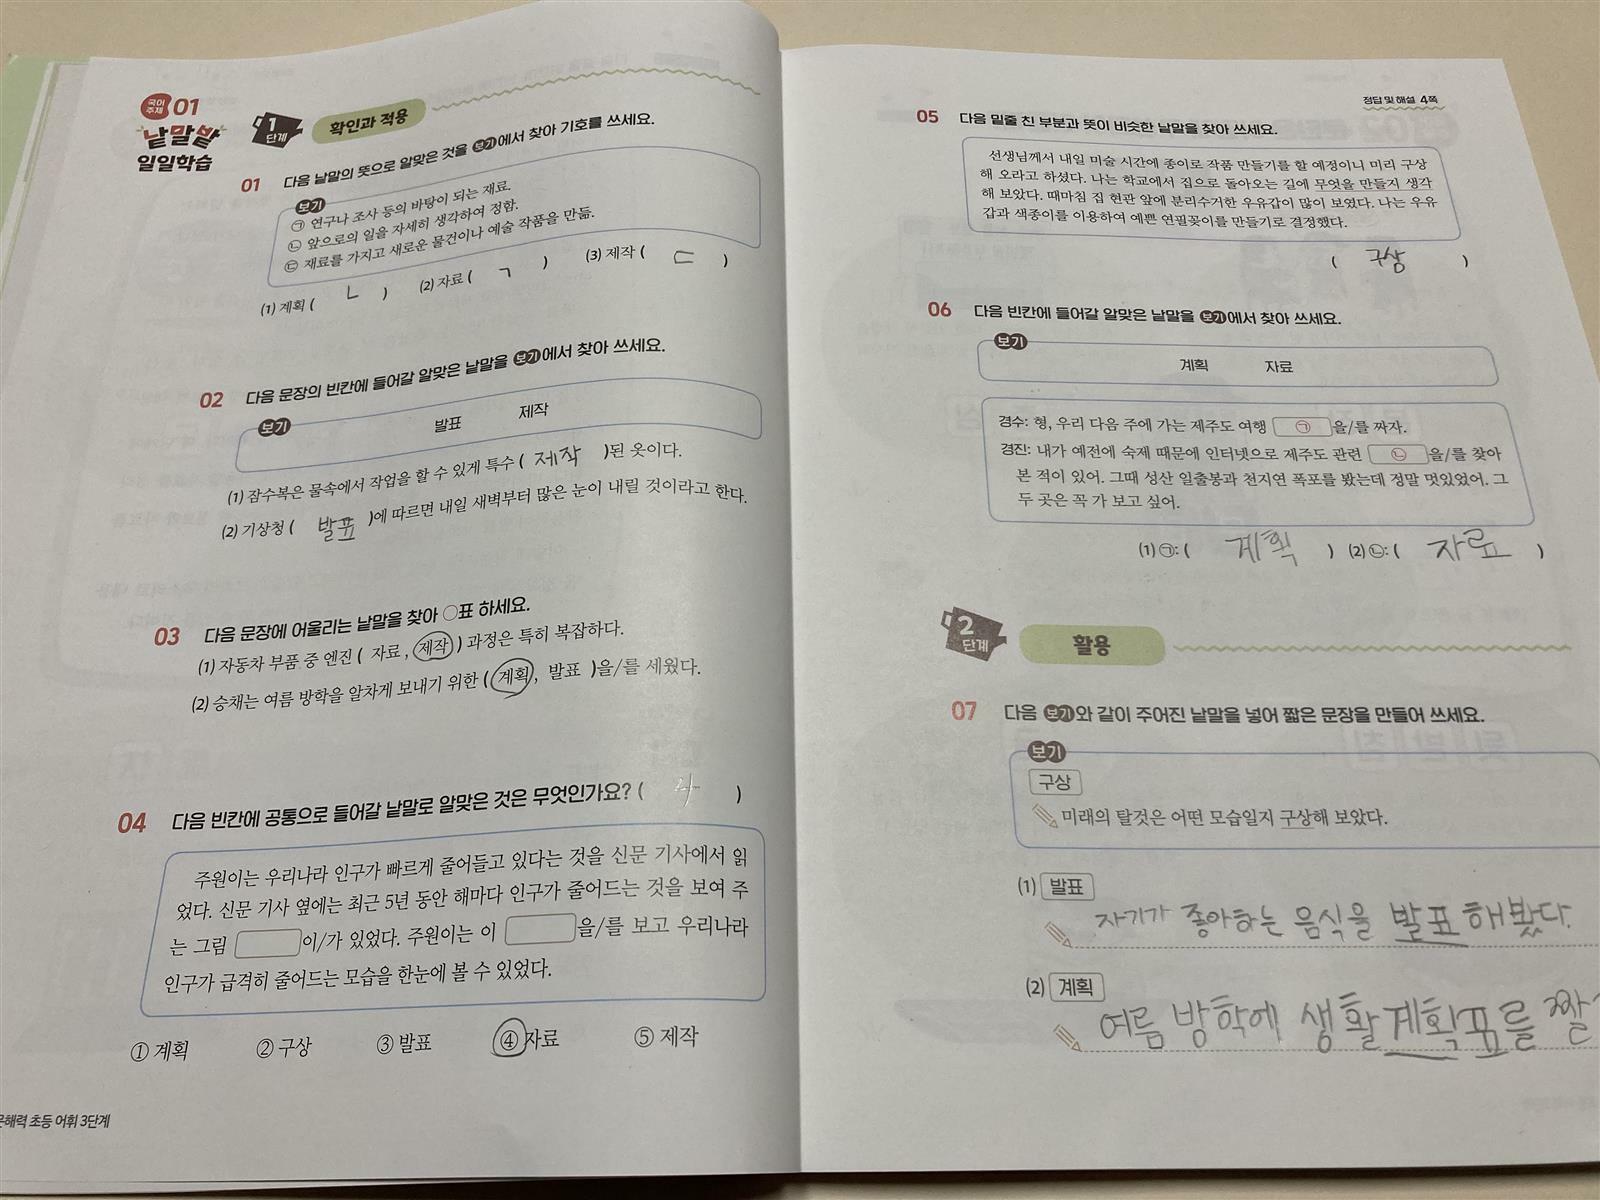 국어 주제 01
낱말밭
일일학습
1단계 확인과 적용
01 다음 낱말의 뜻으로 알맞은 것을 보기에서 찾아 기호를 쓰세요.
보기
㉠ 연구나 조사 등의 바탕이 되는 재료.
㉡ 앞으로의 일을 자세히 생각하여 정함.
㉢ 재료를 가지고 새로운 물건이나 예술 작품을 만듦.
(1) 계획 ( ㄴ ) (2) 자료 ( ㄱ ) (3) 제작 ( ㄷ )
02 다음 문장의 빈칸에 들어갈 알맞은 낱말을 보기에서 찾아 쓰세요.
보기
발표 제작
(1) 잠수복은 물속에서 작업을 할 수 있게 특수 ( 제작 )된 옷이다.
(2) 기상청 ( 발표 )에 따르면 내일 새벽부터 많은 눈이 내릴 것이라고 한다.
03 다음 문장에 어울리는 낱말을 찾아 ○표 하세요.
(1) 자동차 부품 중 엔진 ( 자료, 제작 ) 과정은 특히 복잡하다.
(2) 승채는 여름 방학을 알차게 보내기 위한 ( 계획, 발표 )을/를 세웠다.
04 다음 빈칸에 공통으로 들어갈 낱말로 알맞은 것은 무엇인가요? ( 4 )
주원이는 우리나라 인구가 빠르게 줄어들고 있다는 것을 신문 기사에서 읽
었다. 신문 기사 옆에는 최근 5년 동안 해마다 인구가 줄어드는 것을 보여 주
는 그림 이/가 있었다. 주원이는 이 을/를 보고 우리나라
인구가 급격히 줄어드는 모습을 한눈에 볼 수 있었다.
① 계획 ② 구상 ③ 발표 ④ 자료 ⑤ 제작
문해력 초등 어휘 3단계
정답 및 해설 4쪽
05 다음 밑줄 친 부분과 뜻이 비슷한 낱말을 찾아 쓰세요.
선생님께서 내일 미술 시간에 종이로 작품 만들기를 할 예정이니 미리 구상
해 오라고 하셨다. 나는 학교에서 집으로 돌아오는 길에 무엇을 만들지 생각
해 보았다. 때마침 집 현관 앞에 분리수거한 우유갑이 많이 보였다. 나는 우유
갑과 색종이를 이용하여 예쁜 연필꽂이를 만들기로 결정했다.
( 구상 )
06 다음 빈칸에 들어갈 알맞은 낱말을 보기에서 찾아 쓰세요.
보기
계획 자료
경수: 형, 우리 다음 주에 가는 제주도 여행 ㉠ 을/를 짜자.
경진: 내가 예전에 숙제 때문에 인터넷으로 제주도 관련 ㉡ 을/를 찾아
본 적이 있어. 그때 성산 일출봉과 천지연 폭포를 봤는데 정말 멋있었어. 그
두 곳은 꼭 가 보고 싶어.
(1) ㉠: ( 계획 ) (2) ㉡: ( 자료 )
2단계 활용
07 다음 보기와 같이 주어진 낱말을 넣어 짧은 문장을 만들어 쓰세요.
보기
구상
미래의 탈것은 어떤 모습일지 구상해 보았다.
(1) 발표
자기가 좋아하는 음식을 발표해봤다.
(2) 계획
여름 방학에 생활계획표를 짤